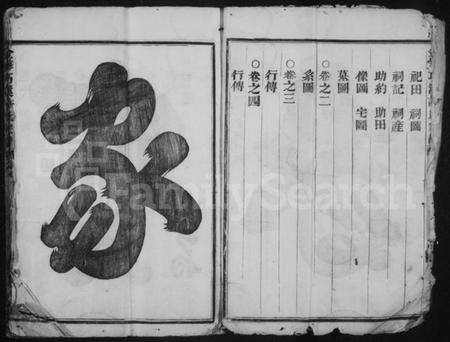 祀田 祠圖
祠記 祠產
助約 助田
像圖 宅圖
墓圖
○卷之二
系圖
○卷之三
行傳
○卷之四
行傳
家
FamilySearch